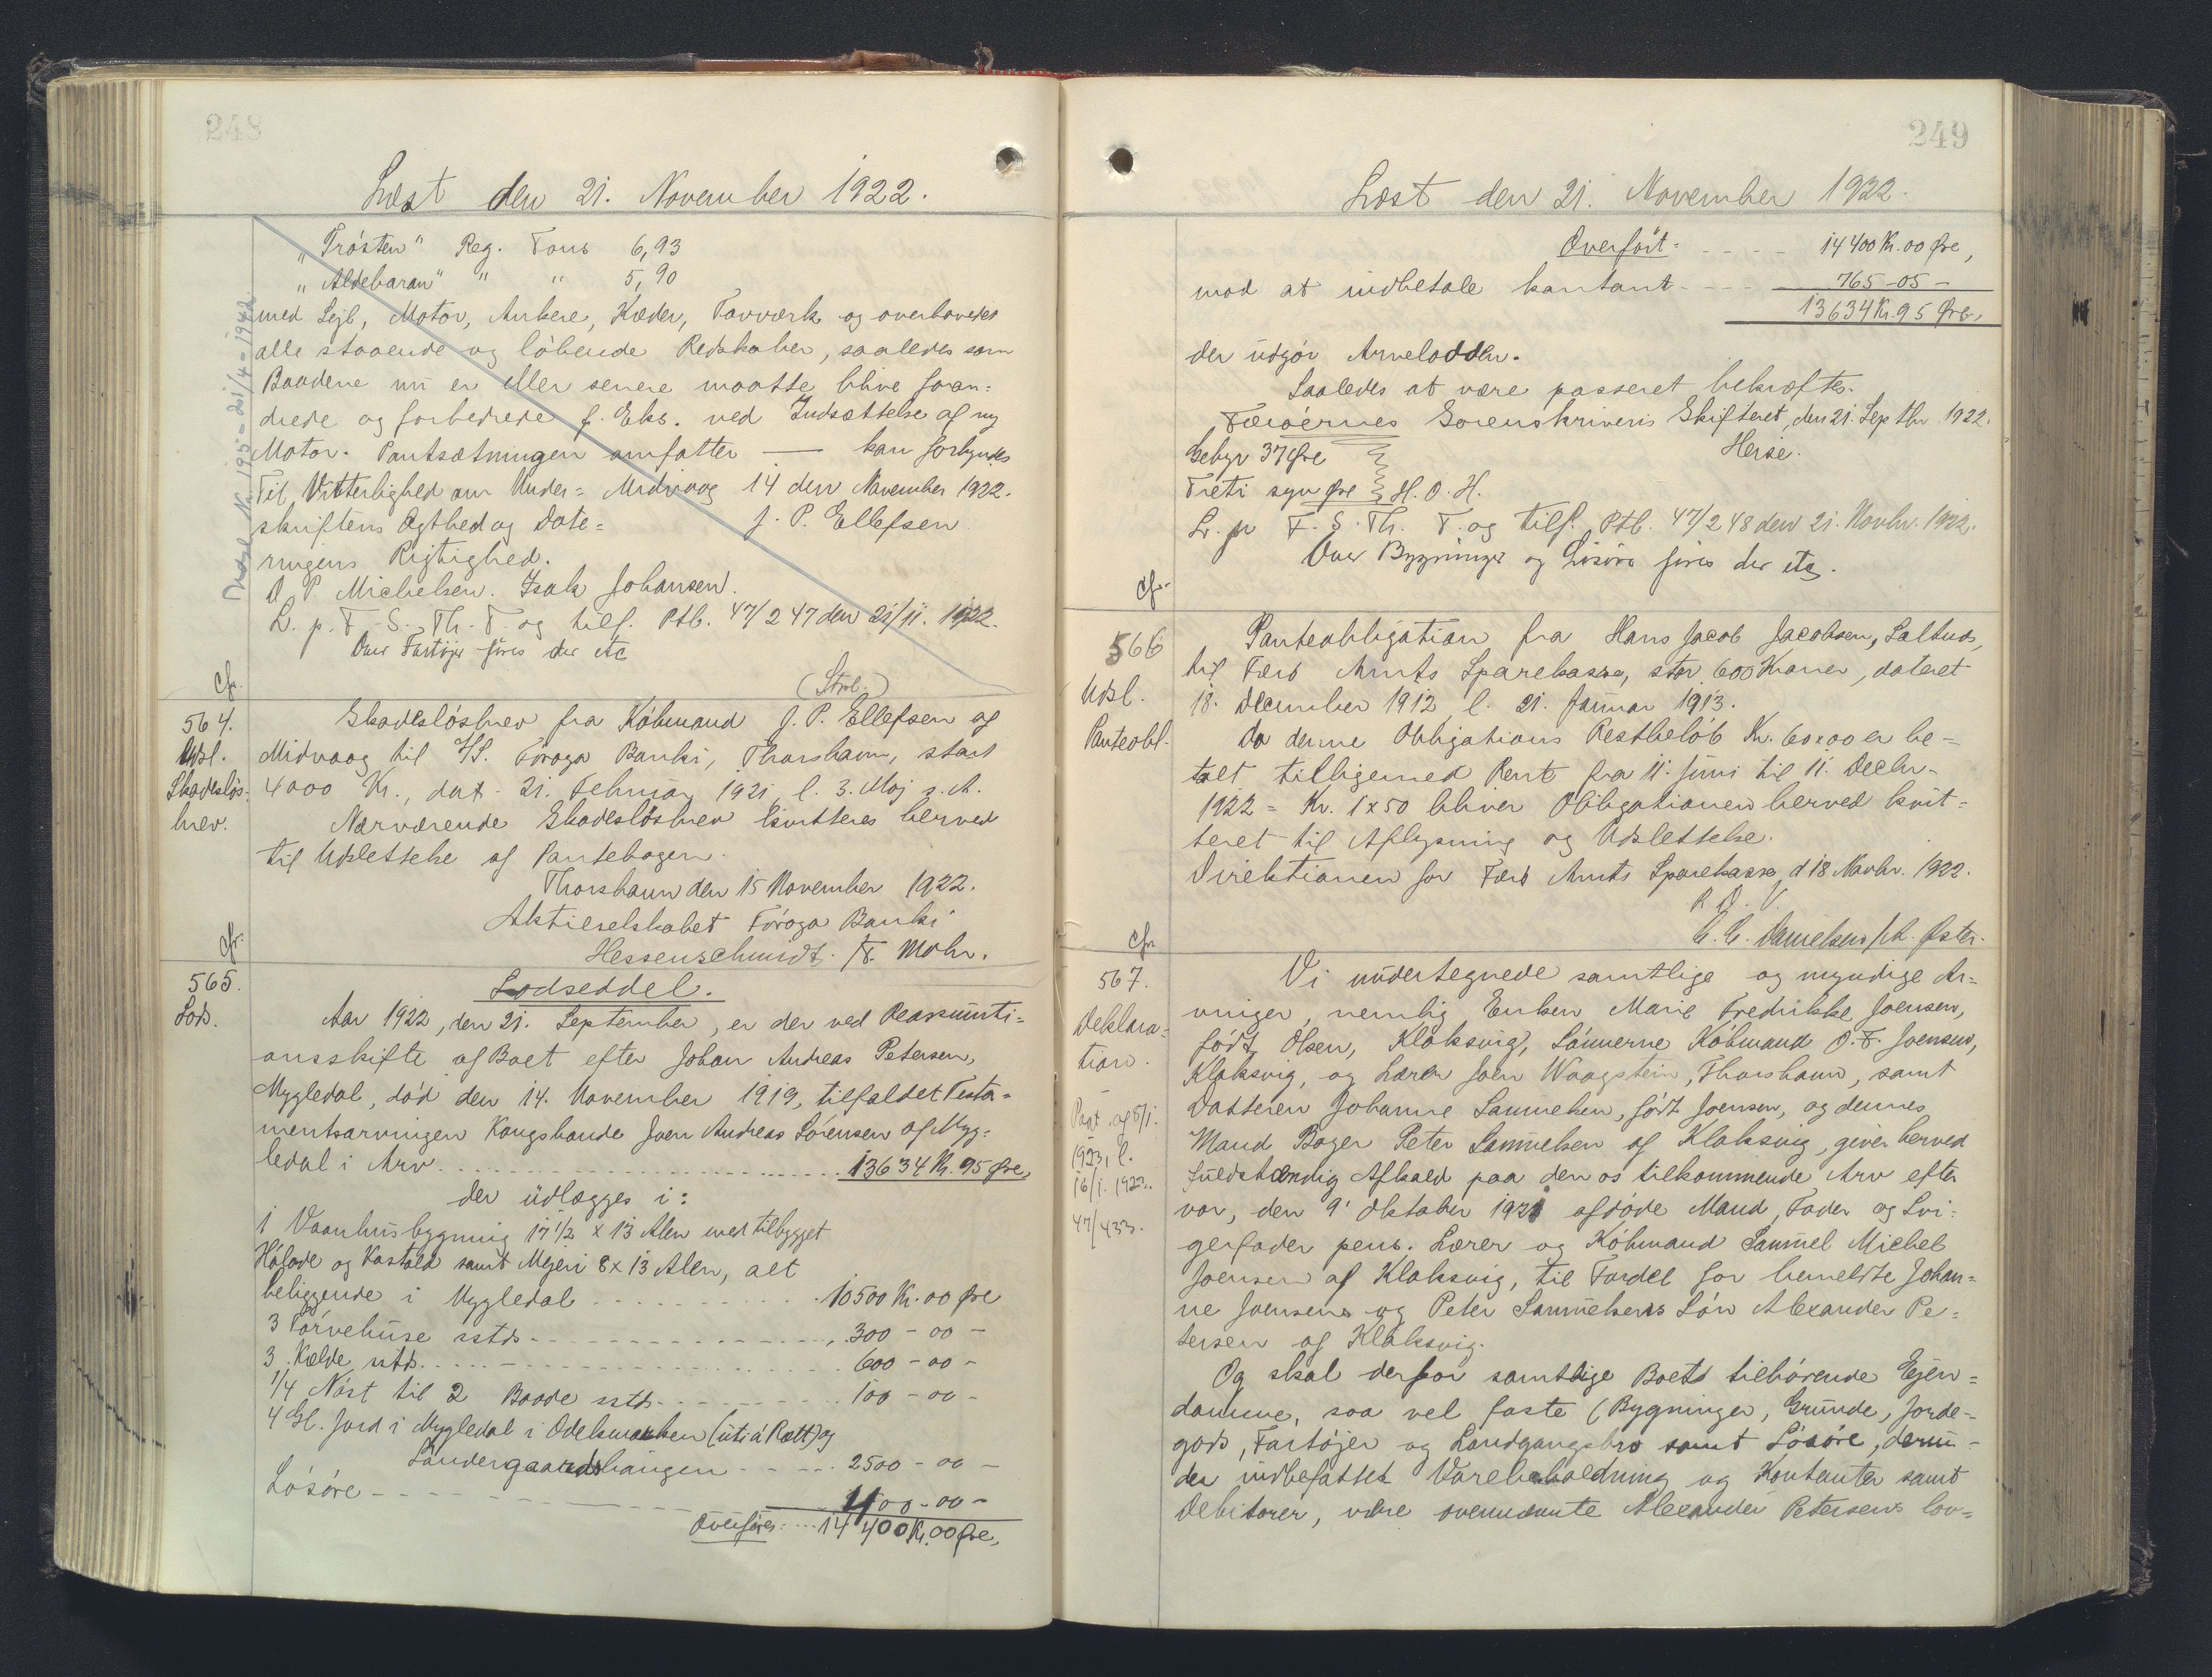 248
Læst den 21. November 1922.
"Trösten" Reg. Tons 6,93
"Aldebaran" " " 5,90
med Sejl, Motor, Ankere, Kæder, Tovværk og overhovedet
alle staaende og löbende Redskaber, saaledes som
Baadene nu er eller senere maatte blive foran=
drede og forbedrede f. Eks. ved Indsættelse af ny
Motor. Pantsætningen omfatter — kan forlyndes
Til Vitterlighed om Under= Midvaag 14 den November 1922.
skriftens Ægthed og Date= J. P. Ellefsen.
ringens Rigtighed.
D P Michelsen. Isak Johansen.
L. p. F. S. Th. T. og tilf. Ptb. 47/247 den 21/11. 1922.
Over Fartøjer föres der etc
Udsl. Nr. 195 - 21/4 - 1942.
Cfr. (Strb.)
564.
Udsl.
Skadeslös-
brev.
Skadeslösbrev fra Köbmand J. P. Ellefsen af
Midvaag til A/S. Föroya Banki, Thorshavn, stort
4000 Kr., dat. 21. Februar 1921 l. 3. Maj s. A.
Nærværende Skadeslösbrev kvitteres herved
til Udslettelse af Pantebogen.
Thorshavn den 15 November 1922.
Aktieselskabet Föroya Banki
Hessenschmidt. /F. Mohr.
Cfr.
565.
Lods.
Lodseddel.
Aar 1922, den 21. September, er der ved Reassumti=
onsskifte af Boet efter Johan Andreas Petersen,
Mygledal, död den 14. November 1919, tilfaldet Testa=
mentsarvingen Kongsbonde Joen Andreas Sörensen af Myg=
ledal i Arv 13634 Kr. 95 Øre,
der udlægges i:
1 Vaanhusbygning 17 1/2 x 13 Alen med tilbygget
Hölade og Kostald samt Mejeri 8 x 13 Alen, alt
beliggende i Mygledal 10500 Kr. 00 Øre
3 Törvehuse sstds 300 - 00 -
3 Kælde sstds. 600 - 00 -
1/4 Nöst til 2 Baade sstds 100 - 00 -
4 Gl. Jord i Mygledal i Odelsmarken (úti á Rætt) og
Sandergaardshaugen 2500 - 00 -
Lösöre 400 - 00 -
Overføres: 14400 Kr. 00 Øre,
249
Læst den 21. November 1922.
Overfört: 14400 Kr. 00 Øre,
mod at indbetale kontant 765 - 05 -
13634 Kr. 95 Øre,
der udgör Arvelodden.
Saaledes at være passeret bekræftes.
Færöernes Sorenskriveris Skifteret, den 21. Septbr. 1922.
Heise.
Gebyr 37 Øre
Treti syv Øre H. O. H.
L. p. F. S. Th. T. og tilf. Ptb. 47/248 den 21. Novbr. 1922.
Over Bygninger og Lösöre föres der etc.
Cfr.
566
Udsl.
Panteobl.
Panteobligation fra Hans Jacob Jacobsen, Saltnes,
til Færö Amts Sparekasse, stor 600 Kroner, dateret
18. December 1912, l. 21. Januar 1913.
Da denne Obligations Restbelöb Kr. 60x00 er be=
talt tilligemed Rent fra 11. Juni til 11. Decbr.
1922 = Kr. 1x50 bliver Obligationen herved kvit=
teret til Aflysning og Udslettelse.
Direktionen for Færö Amts Sparekasse, d 18 Novbr. 1922.
P. D. V.
C. C. Danielsen /A. Øster.
Cfr.
567.
Deklara=
tion.
Pant. af 5/1.
1923, l.
16/1. 1923.
47/433.
Vi undertegnede samtlige og myndige Ar=
vinger, nemlig Enken Marie Fredrikke Joensen,
född Olsen, Klaksvig, Sönnerne Köbmand O. F. Joensen,
Klaksvig, og Lærer Joen Waagstein, Thorshavn, samt
Datteren Johanne Samuelsen, född Joensen, og dennes
Mand Bager Peter Samuelsen af Klaksvig, giver herved
fuldstændig Afkald paa den os tilkommende Arv efter
vor, den 9' Oktober 1921 afdöde Mand, Fader og Svi=
gerfader pens. Lærer og Köbmand Samuel Michel
Joensen af Klaksvig, til Fordel for bemeldte Johan=
ne Joensens og Peter Samuelsens Sön Alexander Pe=
tersen af Klaksvig.
Og skal derfor samtlige Boets tilhörende Ejen=
domme, saa vel faste (Bygninger, Grunde, Jorde=
gods, Fartøjer og Landgangsbro samt Lösöre, derun=
der indbefattet Varebeholdning og Kontanter samt
Debitorer, være ovennævnte Alexander Petersens lov=